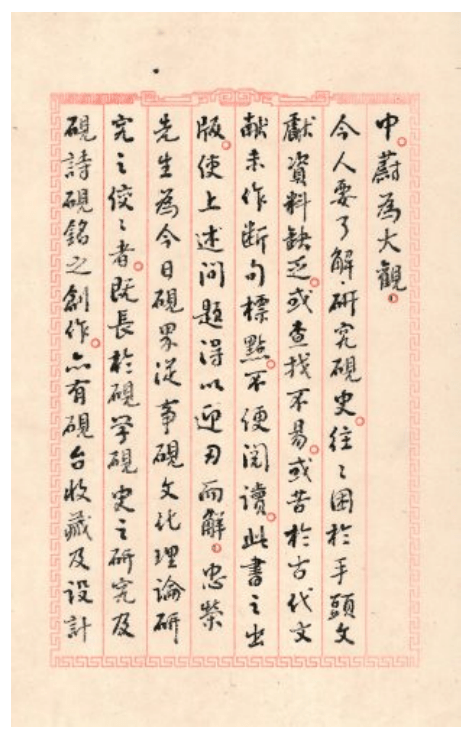 中。蔚為大觀。
今人要了解、研究硯史。往〻困於手頭文
獻資料缺乏。或查找不易。或苦於古代文
献未作斷句標點。不便閱讀。此書之出
版。使上述问題得以迎刃而解。忠榮
先生為今日硯界從事硯文化理論研
究之佼〻者。既長於硯学硯史之研究及
硯詩硯銘之創作。亦有硯台收藏及设計